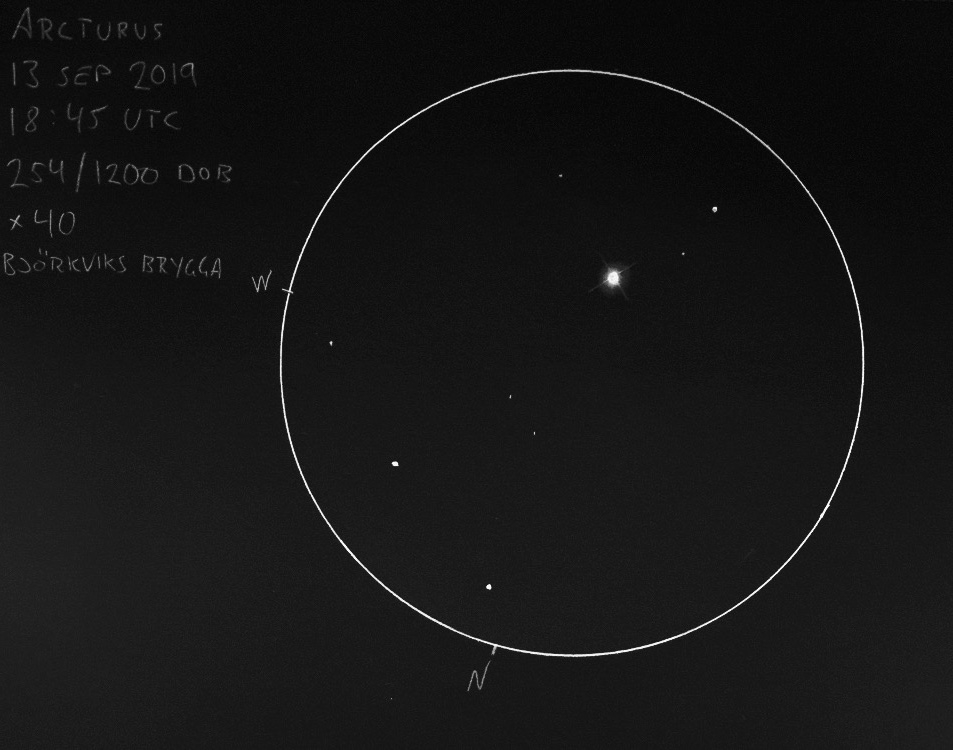 ARCTURUS
13 SEP 2019
18:45 UTC
254/1200 DOB
x 40
BJÖRKVIKS BRYGGA
W
N